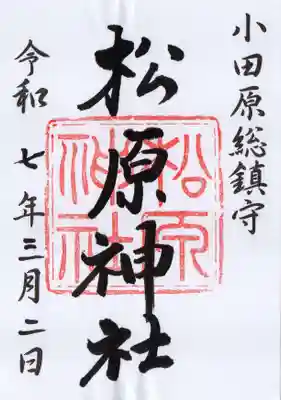 小田原総鎮守
松原神社
令和七年三月二日
松原神社